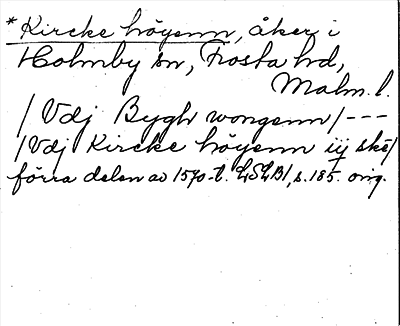 *Kircke höyenn, åker i
Holmby sn, Frosta hd,
Malm. l.
/Vdj Bygh wongenn/---
/Vdj Kircke höyenn iij ske/
förra delen av 1570-t. LSLB1, s. 185. orig.